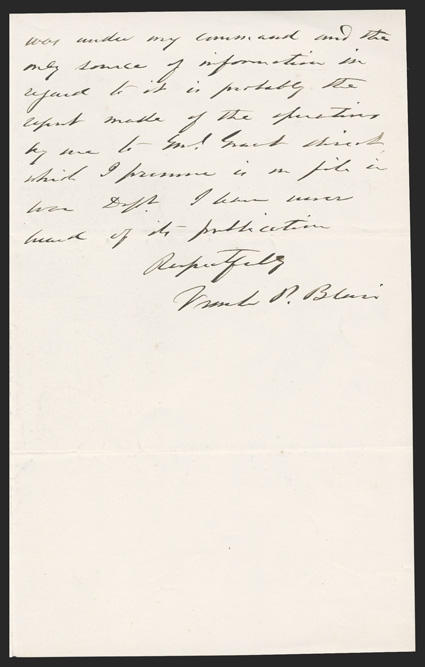 was under my command and the
only source of information in
regard to it is probably the
report made of the operations
by me to Genl Grant direct
which I presume is on file in
War Dept. I have never
heard of its publication
Respectfully
Frank P. Blair